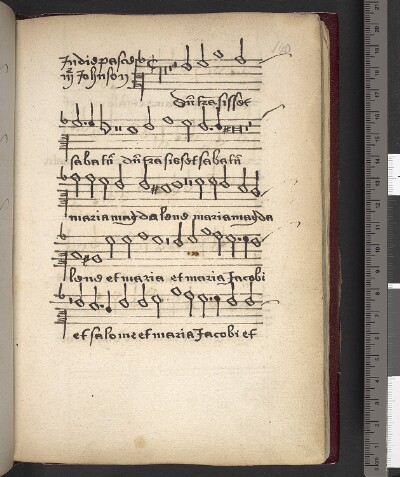 In die pasce
m Johnson
Dũ trãsisset
sabatũ dũ trãsisset sabatũ
maria magdalene maria magda
lene et maria et maria Jacobi
et salome et maria Jacobi et